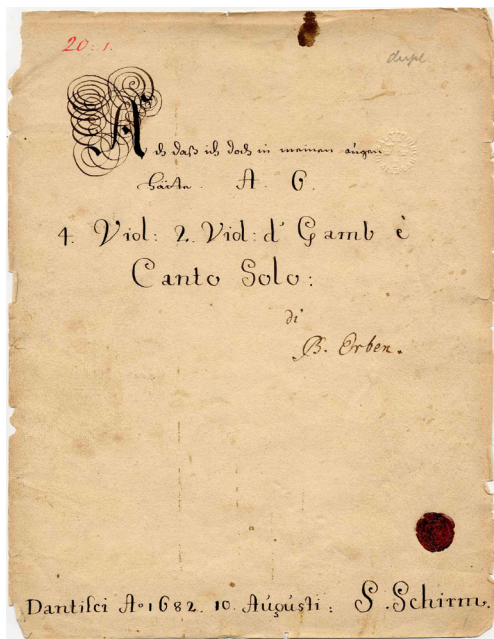 20: 1.
dupl
Ach daß ich doch in meinen augen
hätte. A 6.
4. Viol: 2. Viol: d' Gamb è
Canto Solo:
di
B. Erben.
Dantisci Aº 1682. 10. Augusti: S. Schirm.